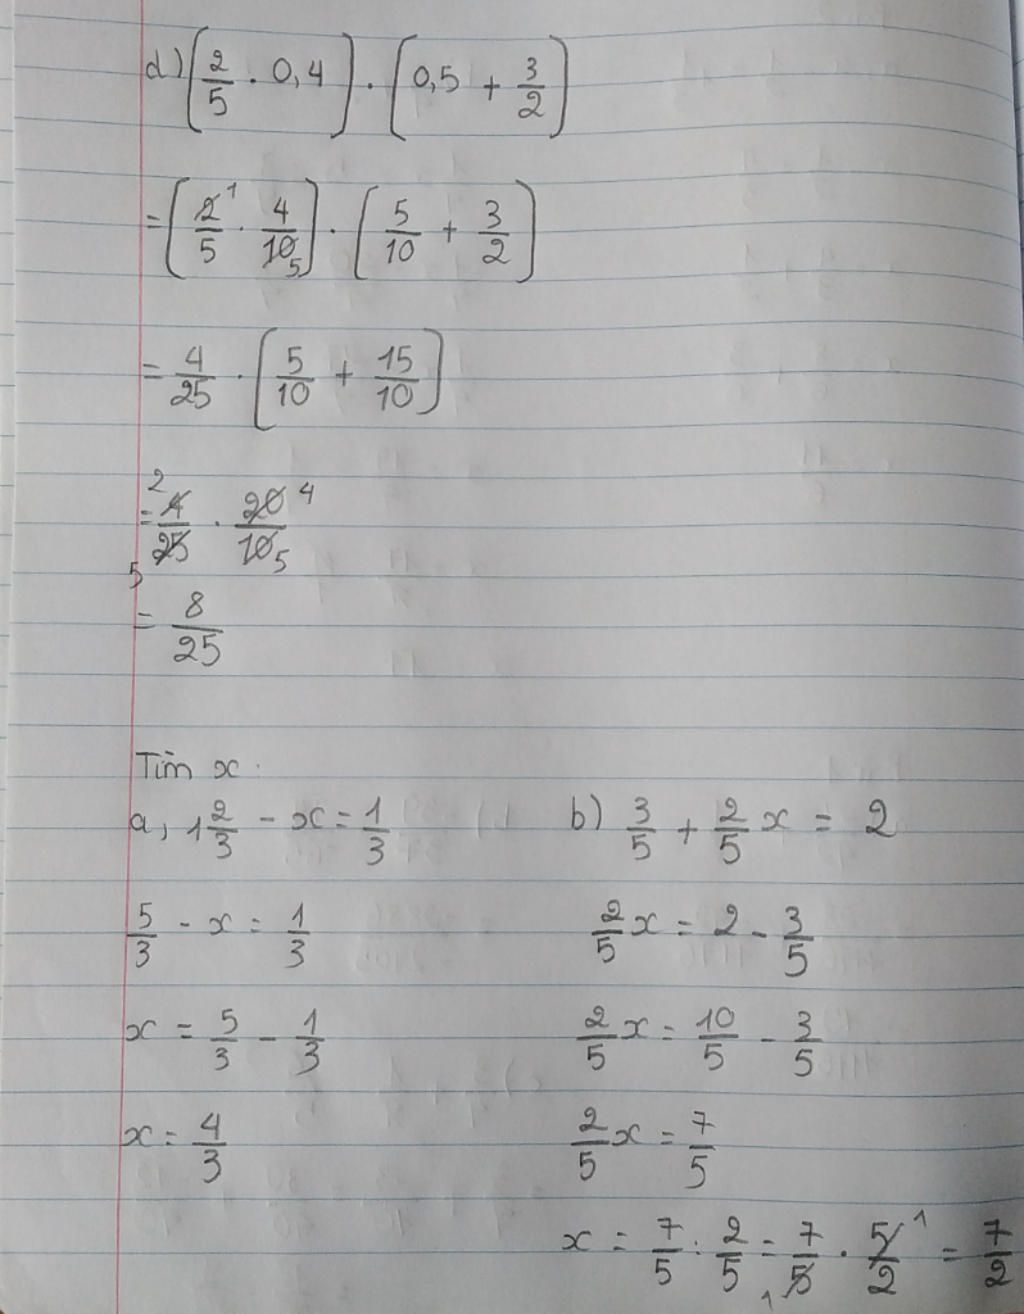 d) [2/5 . 0,4] . [0,5 + 3/2]
= [2/5 1 . 4/10 5] . [5/10 + 3/2]
= 4/25 . [5/10 + 15/10]
= 2 4/25 5 . 20/10 4 5
= 8/25
Tìm x
a, 1 2/3 - x = 1/3
5/3 - x = 1/3
x = 5/3 - 1/3
x = 4/3
b) 3/5 + 2/5 x = 2
2/5 x = 2 - 3/5
2/5 x = 10/5 - 3/5
2/5 x = 7/5
x = 7/5 : 2/5 = 7/5 1 . 5/2 1 = 7/2